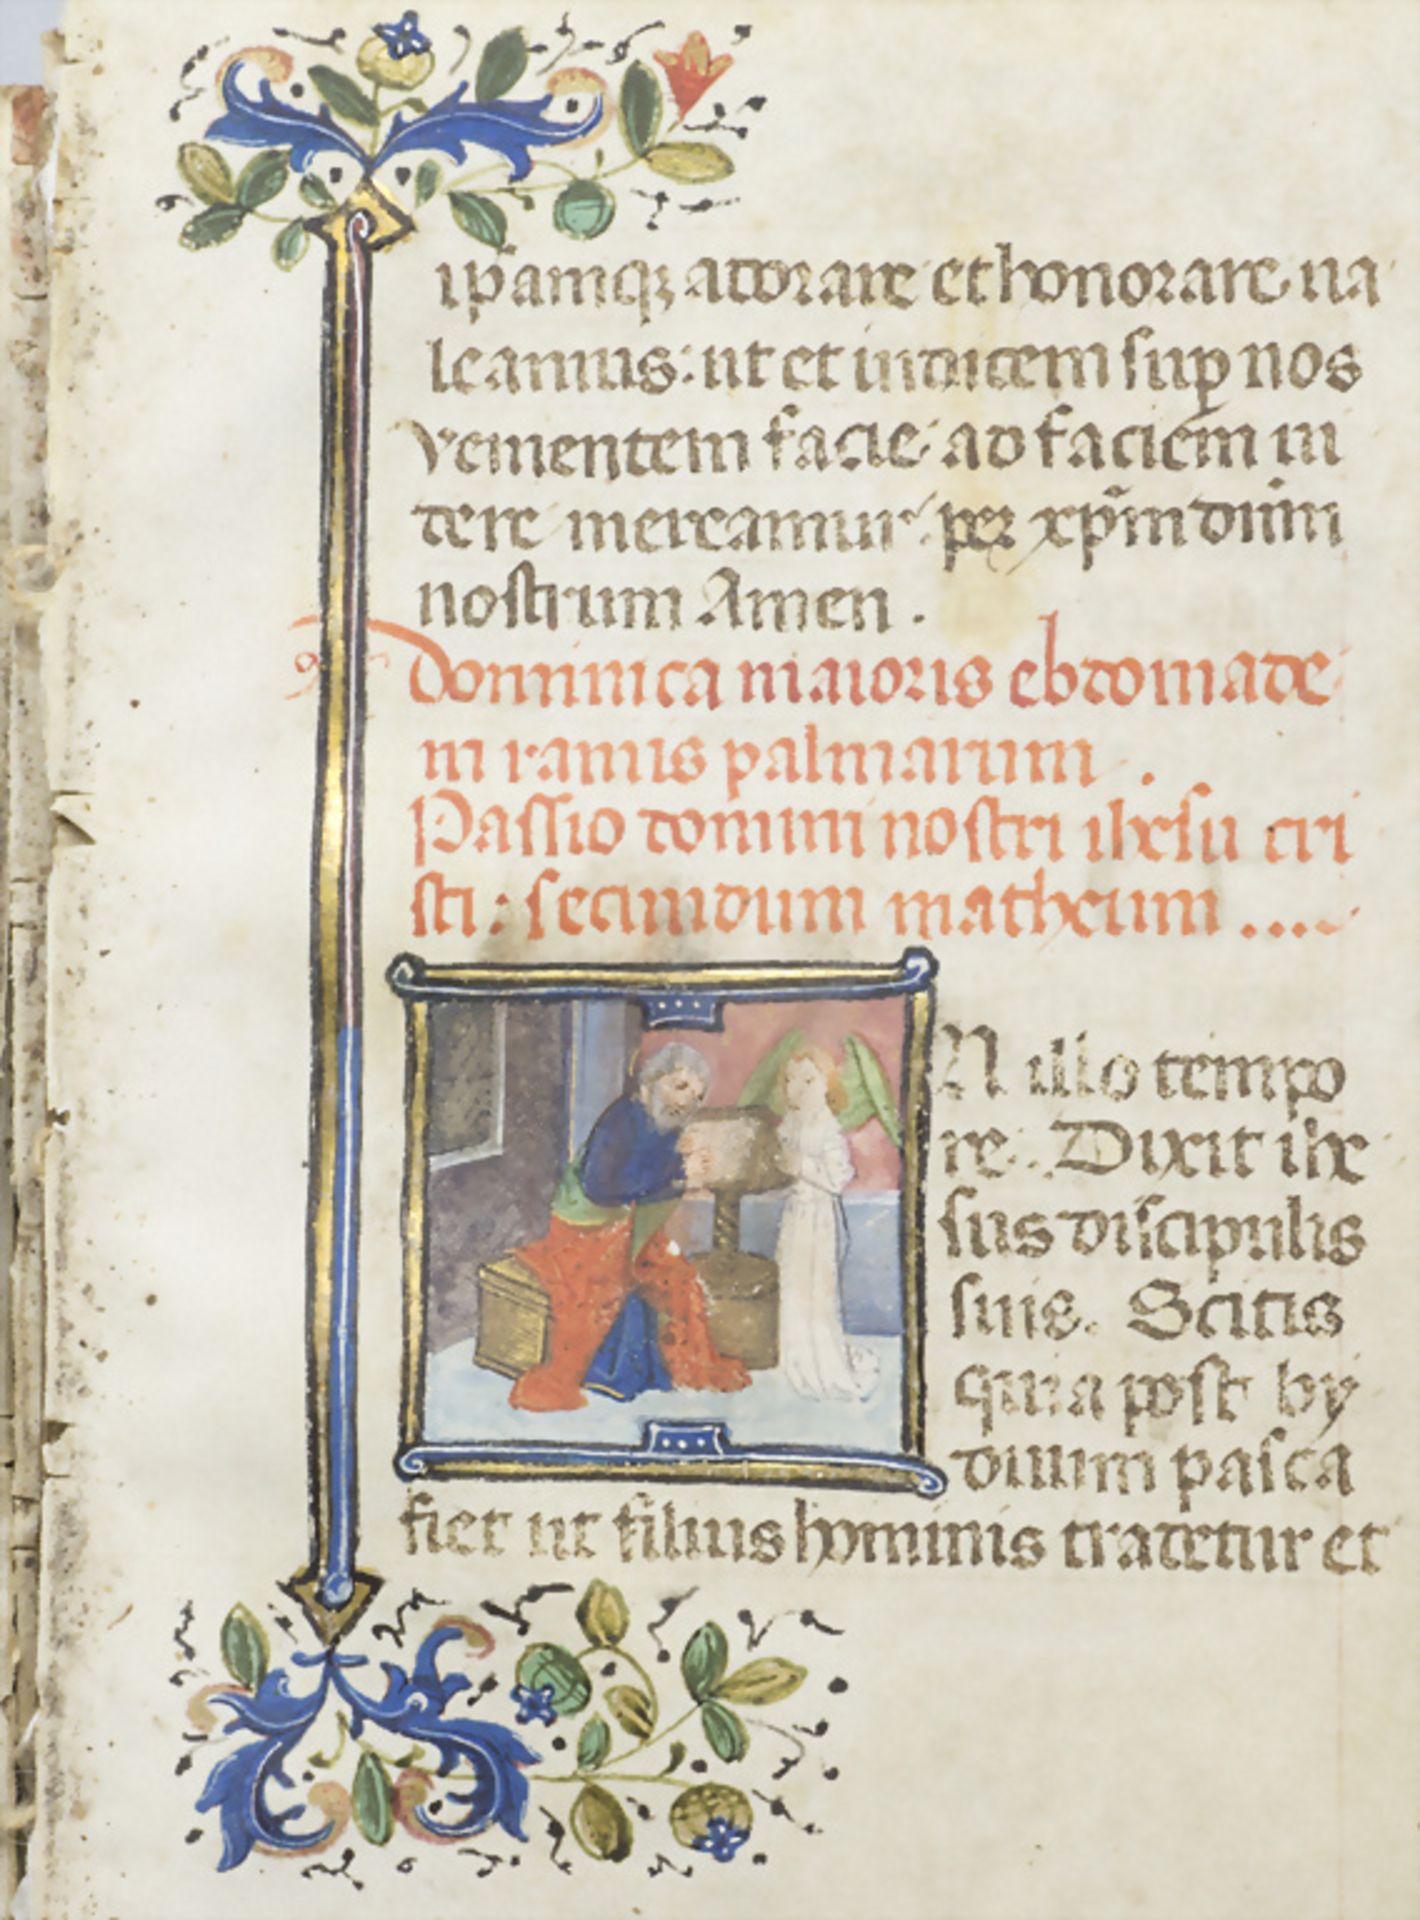 ip̃amqꝫ adorare et honorare ua
leamus: ut et iudicem suꝑ nos
venientem facie ad faciem ui
dere mereamur per xp̃m dñm
nostrum Amen.
Dominica maioris ebdomade
in ramis palmarum.
Passio domini nostri ihesu cri
sti: secundum matheum....
N illo tempo
re. Dixit ihe
sus discipulis
suis. Scitis
quia post by
duum pasca
fiet ut filius hominis tradetur et